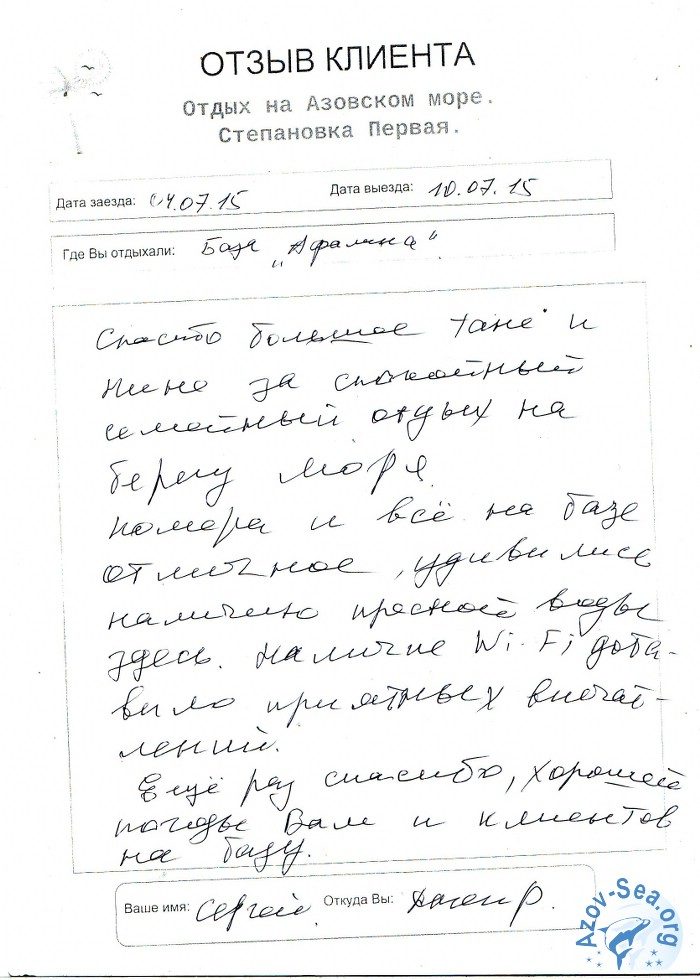 ОТЗЫВ КЛИЕНТА
Отдых на Азовском море.
Степановка Первая.
Дата заезда: 04.07.15 Дата выезда: 10.07.15
Где Вы отдыхали: База „Афалина“
Спасибо большое Тане и
Нине за спокойный
семейный отдых на
берегу моря.
Номера и всё на базе
отличное, удивились
наличию пресной воды
здесь. Наличие Wi-Fi доба-
вило приятных впечат-
лений.
Ещё раз спасибо, хорошей
погоды Вам и клиентов
на базу.
Ваше имя: Сергей. Откуда Вы: Днепр.
Azov-Sea.org